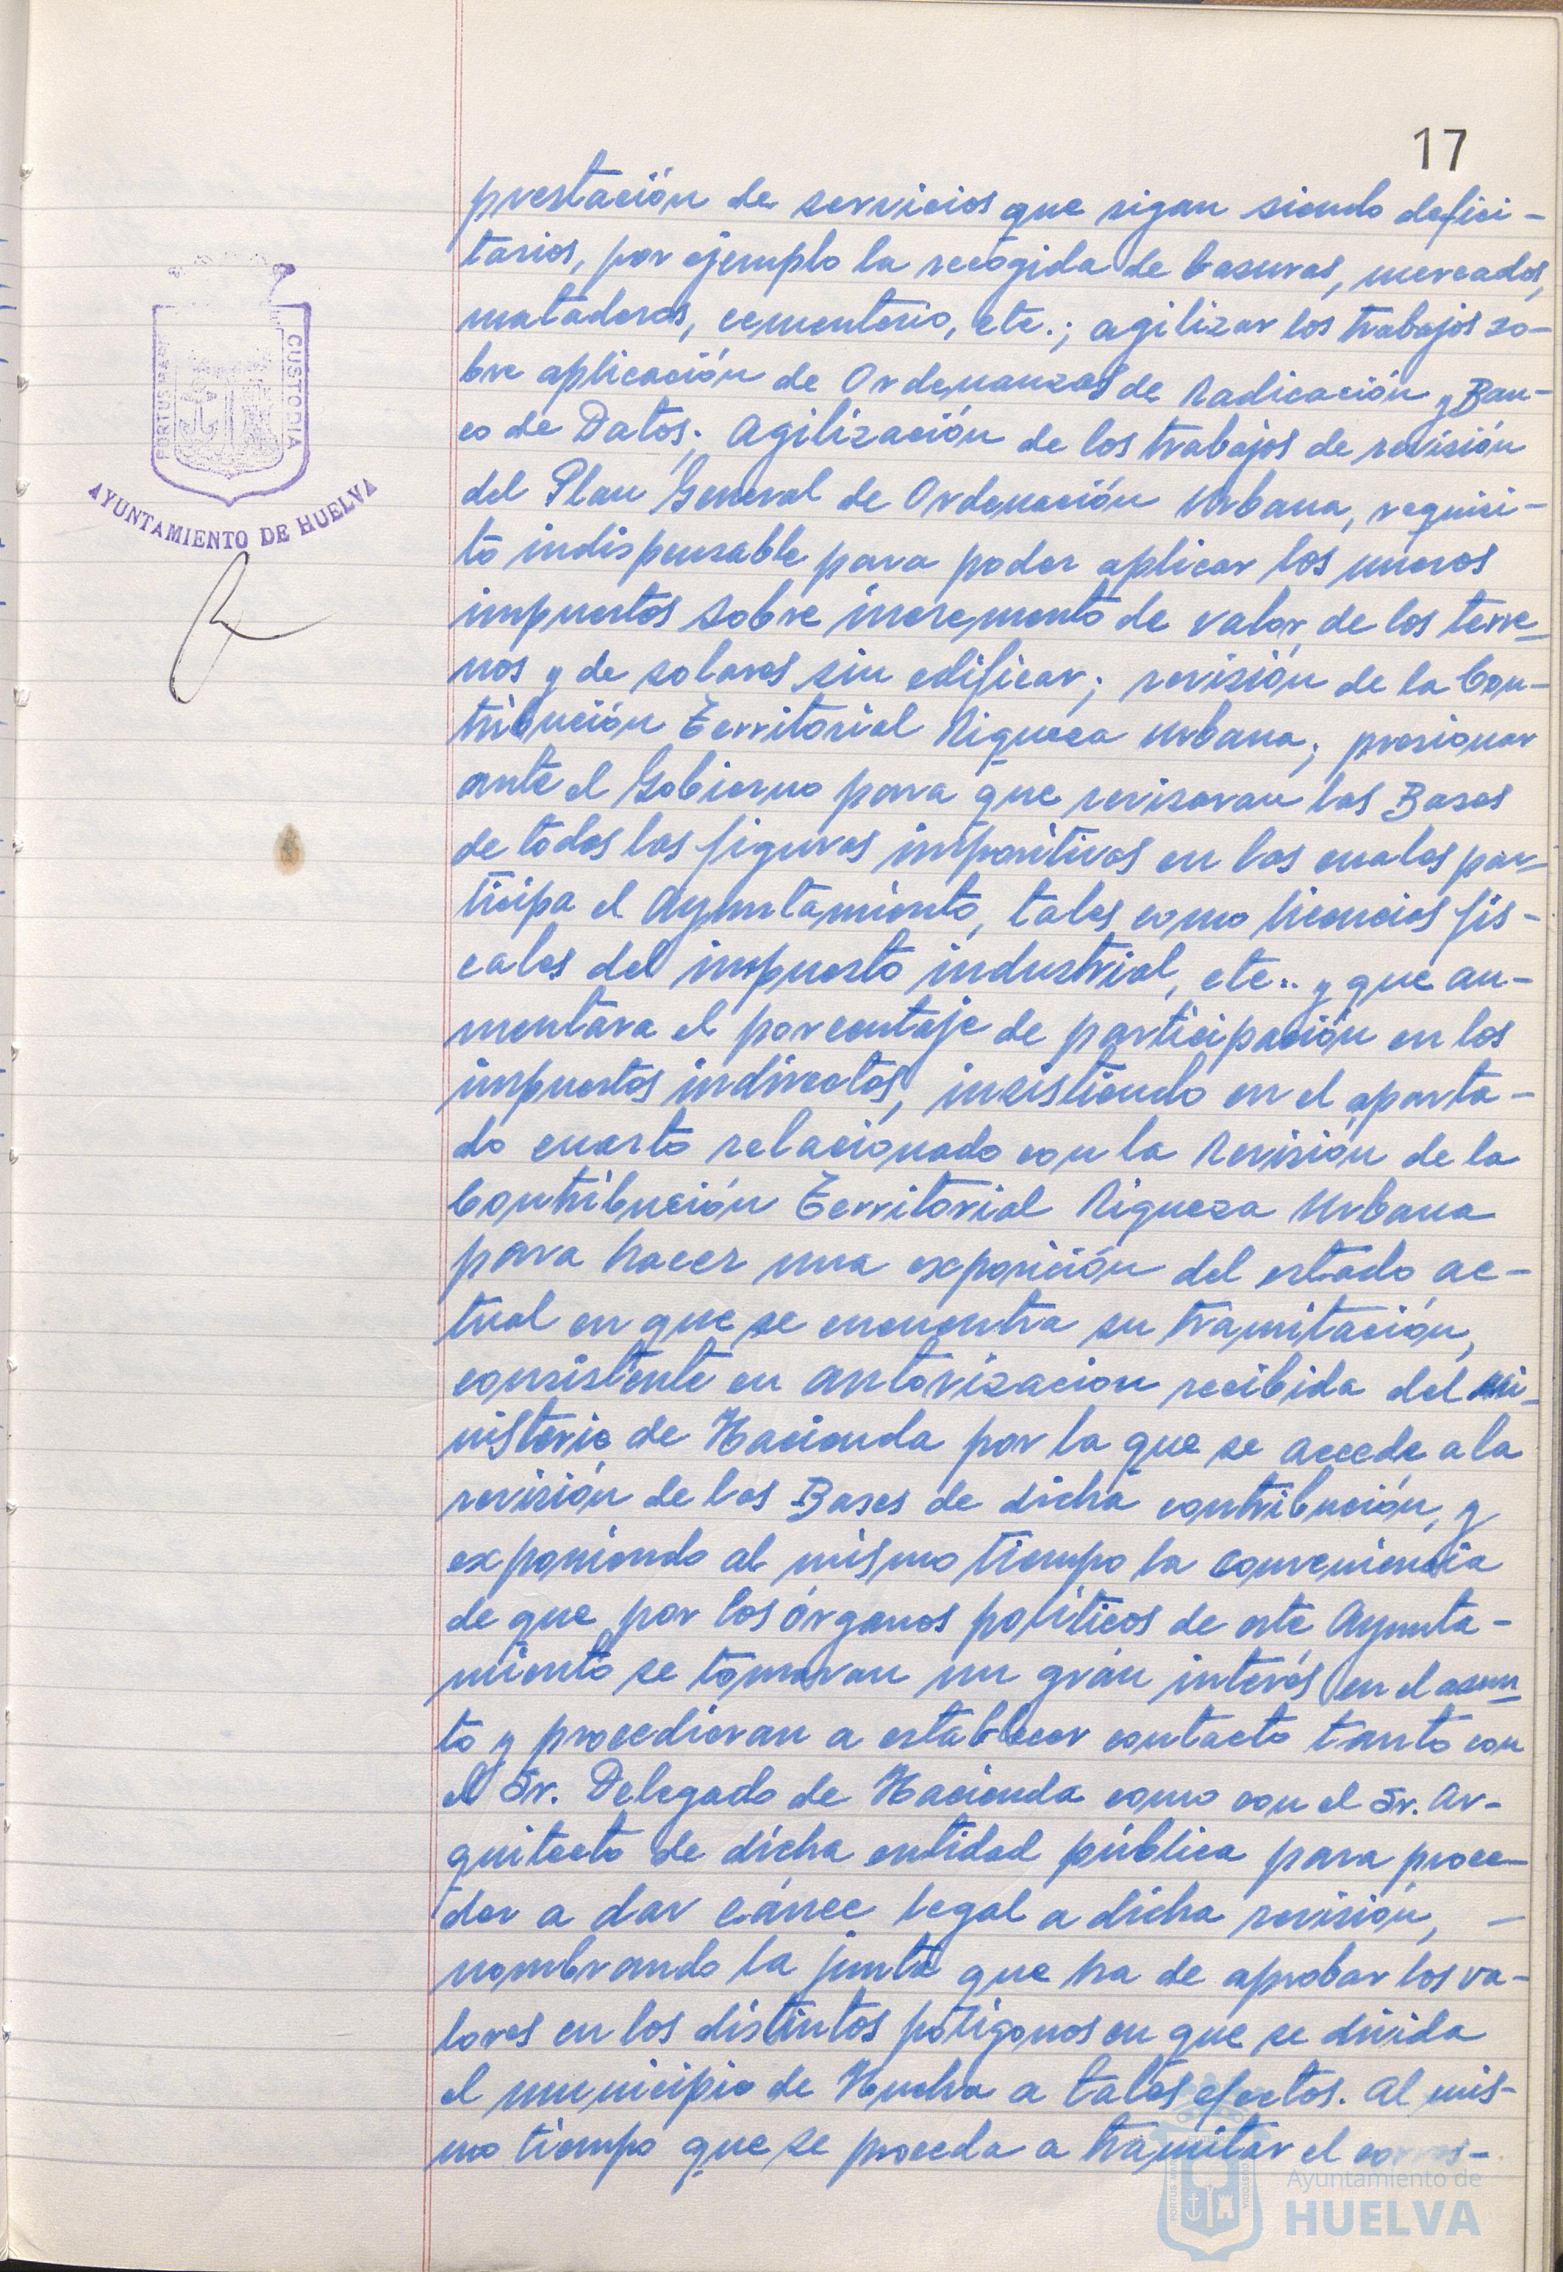 17
prestación de servicios que sigan siendo defici-
tarios, por ejemplo la recogida de basuras, mercados,
mataderos, cementerio, etc.; agilizar los trabajos so-
bre aplicación de Ordenanzas de Radicación y Ban-
co de Datos; Agilización de los trabajos de revisión
del Plan General de Ordenación Urbana, requisi-
to indispensable para poder aplicar los nuevos
impuestos sobre incremento de valor de los terre-
nos y de solares sin edificar; revisión de la Con-
tribución Territorial Riqueza Urbana; presionar
ante el Gobierno para que revisaran las Bases
de todas las figuras impositivas en las cuales par-
ticipa el Ayuntamiento, tales como licencias fis-
cales del impuesto industrial, etc.. y que au-
mentara el porcentaje de participación en los
impuestos indirectos, insistiendo en el aparta-
do cuarto relacionado con la Revisión de la
Contribución Territorial Riqueza Urbana
para hacer una exposición del estado ac-
tual en que se encuentra su tramitación,
consistente en autorización recibida del Mi-
nisterio de Hacienda por la que se accede a la
revisión de las Bases de dicha contribución, y
exponiendo al mismo tiempo la conveniencia
de que por los órganos políticos de este Ayunta-
miento se tomaran un gran interés en el asun-
to y procedieran a establecer contacto tanto con
el Sr. Delegado de Hacienda como con el Sr. Ar-
quitecto de dicha entidad pública para proce-
der a dar cáuce legal a dicha revisión, -
nombrando la junta que ha de aprobar los va-
lores en los distintos polígonos en que se divida
el municipio de Huelva a tales efectos. Al mis-
mo tiempo que se proceda a tramitar el corres-
PORTUS MARIS
CUSTODIA
AYUNTAMIENTO DE HUELVA
PORTUS MARIS
CUSTODIA
Ayuntamiento de
HUELVA